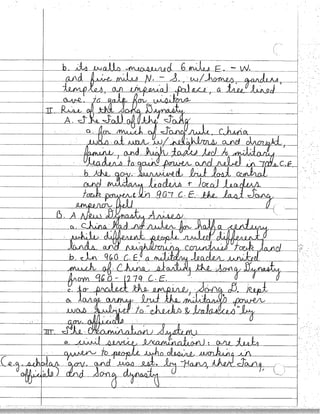 b. its walls measured 6 miles E. - W.
and five miles N. - S., w/homes, gardens,
temples, an imperial palace, a tree lined
ave. to gate for visitors
II. Rise of the Song Dynasty
A. The Fall of the Tang
a. for much of Tang rule, China
was at war w/ neighbors and drought,
famine, and high taxes led to military
leaders to gain power and rebel in 700s C.E.
b. the gov. survived but lost control
and military leaders + local leaders
took power in 907 C.E. the last Tang
emperor fell
B. A New Dynasty Arises
a. China had no ruler for half a century
while different people ruled different
lands and neighboring countries took land
b. In 960 C.E. a military leader united
much of China starting the Song Dynasty
from 960 - 1279 C.E.
c. to protect the empire, Song D. kept
a large army but the military's power
was subject to "checks & balances" by
gov. officials
III. The Examination System
a. civil service examination: are tests
given to people who desire working in
(e.g. scholar gov. and was est. by Hans, then Tang,
officials) and Song dynasty